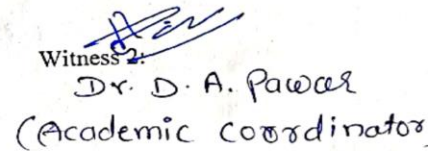 Witness 2:
Dr. D. A. Pawar
(Academic coordinator